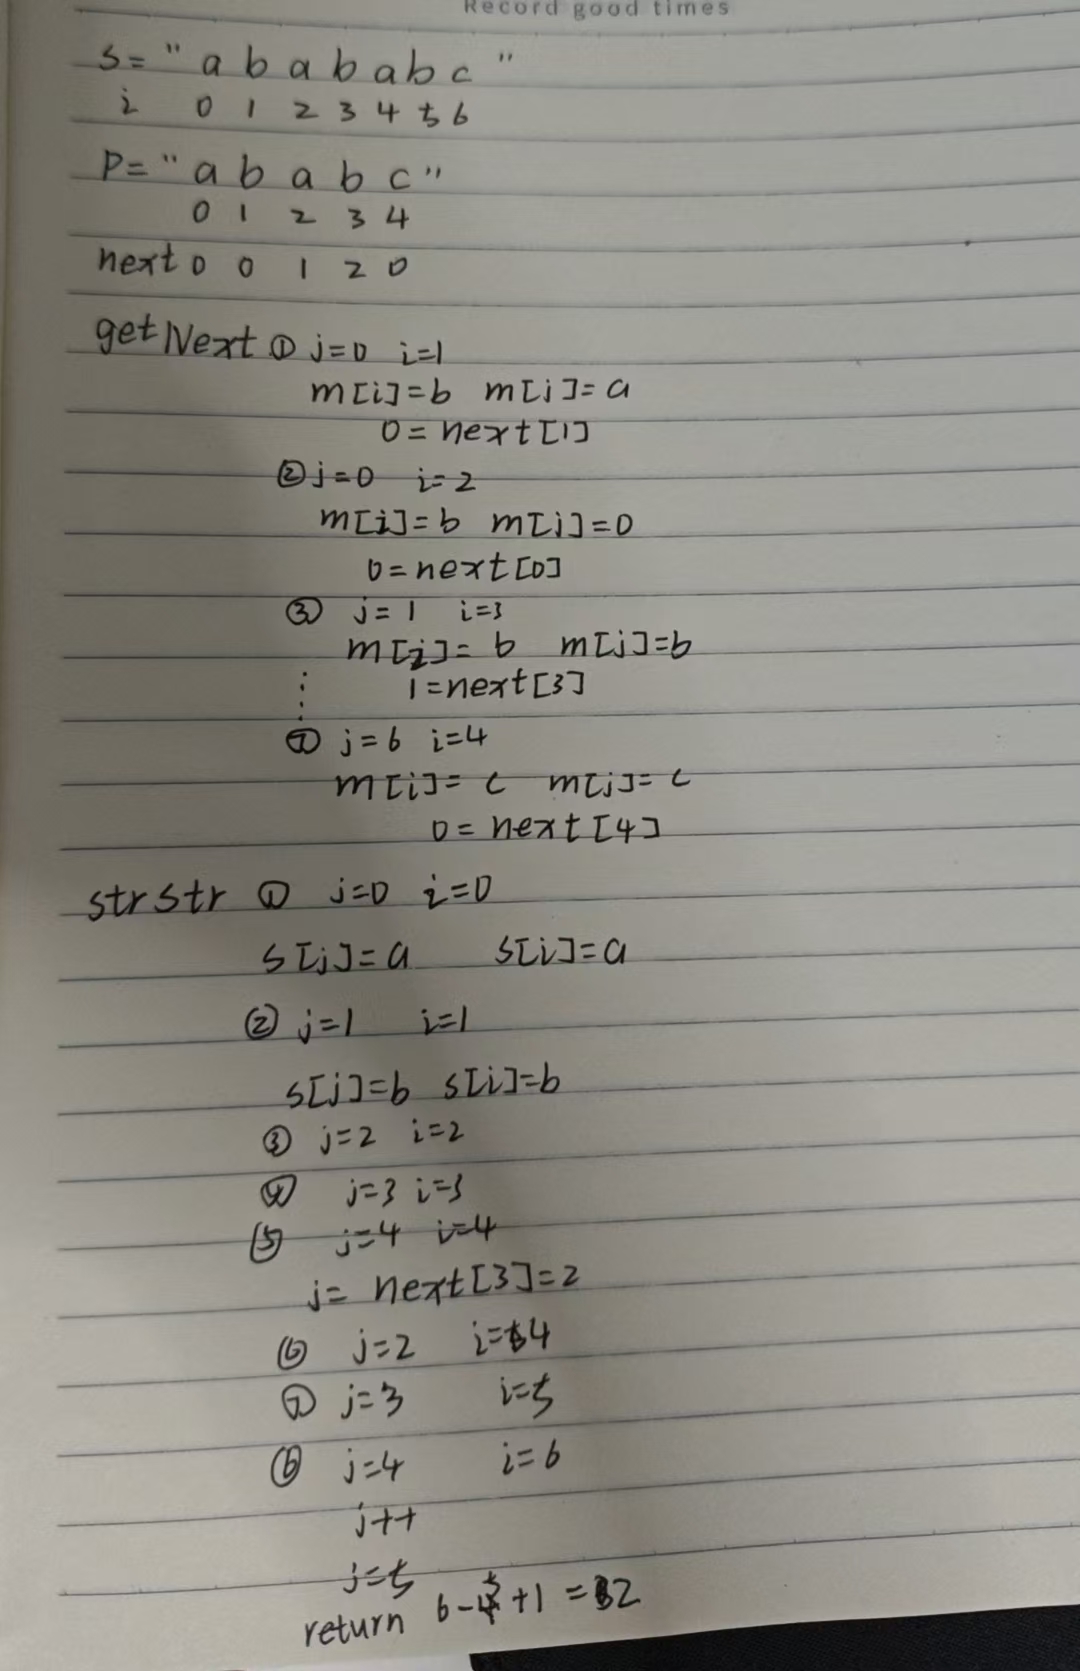 Record good times
s= " a b a b a b c "
i 0 1 2 3 4 5 6
P= " a b a b c "
0 1 2 3 4
next 0 0 1 2 0
getNext ① j=0 i=1
m[i]=b m[j]=a
0=next[1]
② j=0 i=2
m[i]=b m[j]=0
0=next[0]
③ j=1 i=3
m[i]=b m[j]=b
1=next[3]
⋮
⑦ j=6 i=4
m[i]=c m[j]=c
0=next[4]
strstr ① j=0 i=0
s[j]=a s[i]=a
② j=1 i=1
s[j]=b s[i]=b
③ j=2 i=2
④ j=3 i=3
⑤ j=4 i=4
j= next[3]=2
⑥ j=2 i=4
⑦ j=3 i=5
⑥ j=4 i=6
j++
j=5
return 6-5+1=2